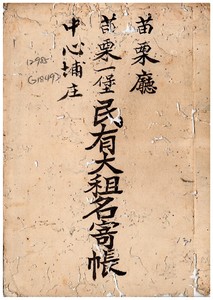 苗栗廳
苗栗一堡
中心埔庄
民有大租名寄帳
1298